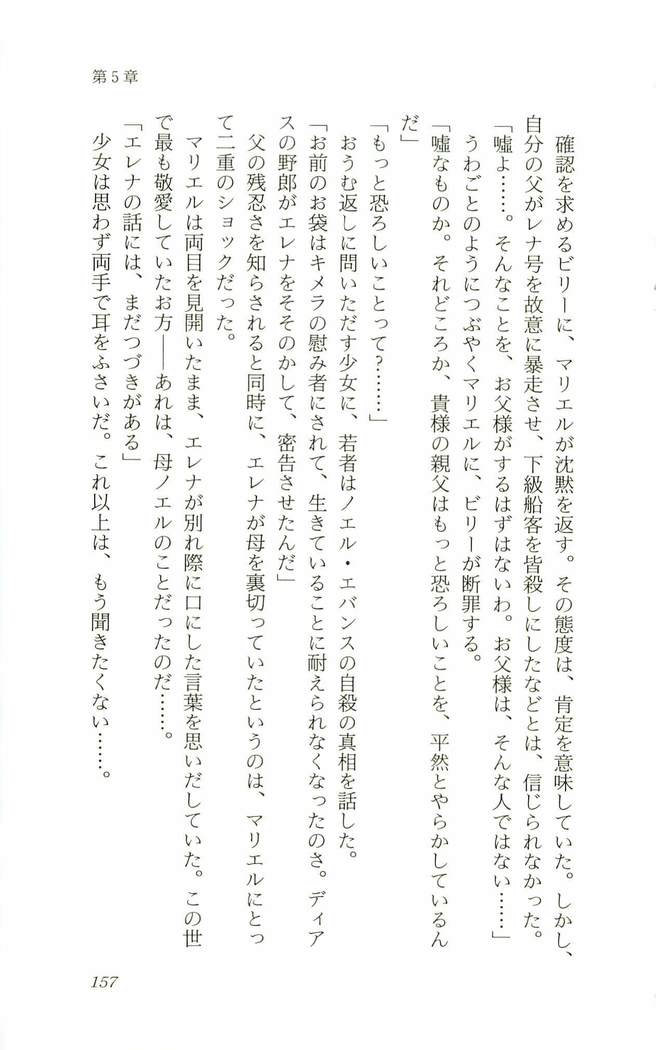 第5章
確認を求めるビリーに、マリエルが沈黙を返す。その態度は、肯定を意味していた。しかし、
自分の父がレナ号を故意に暴走させ、下級船客を皆殺しにしたなどとは、信じられなかった。
「嘘よ……。そんなことを、お父様がするはずはないわ。お父様は、そんな人ではない……」
うわごとのようにつぶやくマリエルに、ビリーが断罪する。
「嘘なものか。それどころか、貴様の親父はもっと恐ろしいことを、平然とやらかしているん
だ」
「もっと恐ろしいことって?……」
おうむ返しに問いただす少女に、若者はノエル・エバンスの自殺の真相を話した。
「お前のお袋はキメラの慰み者にされて、生きていることに耐えられなくなったのさ。ディア
スの野郎がエレナをそそのかして、密告させたんだ」
父の残忍さを知らされると同時に、エレナが母を裏切っていたというのは、マリエルにとっ
て二重のショックだった。
マリエルは両目を見開いたまま、エレナが別れ際に口にした言葉を思いだしていた。この世
で最も敬愛していたお方――あれは、母ノエルのことだったのだ……。
「エレナの話には、まだつづきがある」
少女は思わず両手で耳をふさいだ。これ以上は、もう聞きたくない……。
157